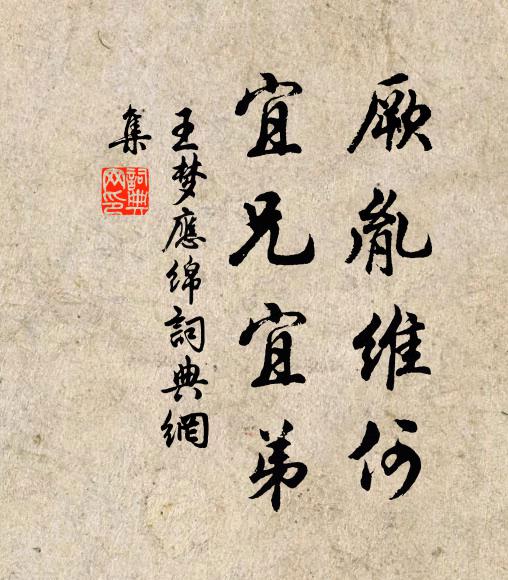 厥胤維何
宜兄宜弟
王梦應綿詞典網
集
詞典
网印